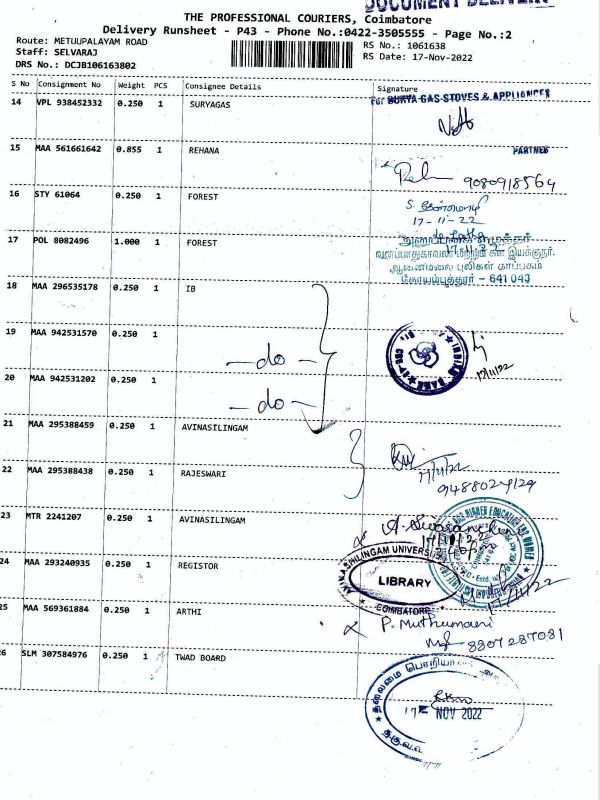 DOCUMENT DELIVERY
THE PROFESSIONAL COURIERS, Coimbatore
Delivery Runsheet - P43 - Phone No.:0422-3505555 - Page No.:2
Route: METUUPALAYAM ROAD
RS No.: 1061638
Staff: SELVARAJ
RS Date: 17-Nov-2022
DRS No.: DCJB106163802
S No Consignment No Weight PCS Consignee Details Signature
14 VPL 938452332 0.250 1 SURYAGAS
For SURYA GAS STOVES & APPLIANCES
PARTNER
15 MAA 561661642 0.855 1 REHANA
9080918564
16 STY 61064 0.250 1 FOREST
17-11-22
17 POL 8082496 1.000 1 FOREST
வனப்பாதுகாவலர் மற்றும் கள இயக்குநர்,
ஆனைமலை புலிகள் காப்பகம்
கோயம்புத்தூர் - 641 043
18 MAA 296535178 0.250 1 IB
19 MAA 942531570 0.250 1
-do-
INDIAN BANK
17/11/22
20 MAA 942531202 0.250 1
-do-
21 MAA 295388459 0.250 1 AVINASILINGAM
17/11/22
22 MAA 295388438 0.250 1 RAJESWARI
23 MTR 2241207 0.250 1 AVINASILINGAM
24 MAA 293240935 0.250 1 REGISTOR
LIBRARY
COIMBATORE
17/11/22
25 MAA 569361884 0.250 1 ARTHI
P. Muthumani
8807287081
26 SLM 307584976 0.250 1 TWAD BOARD
17 NOV 2022